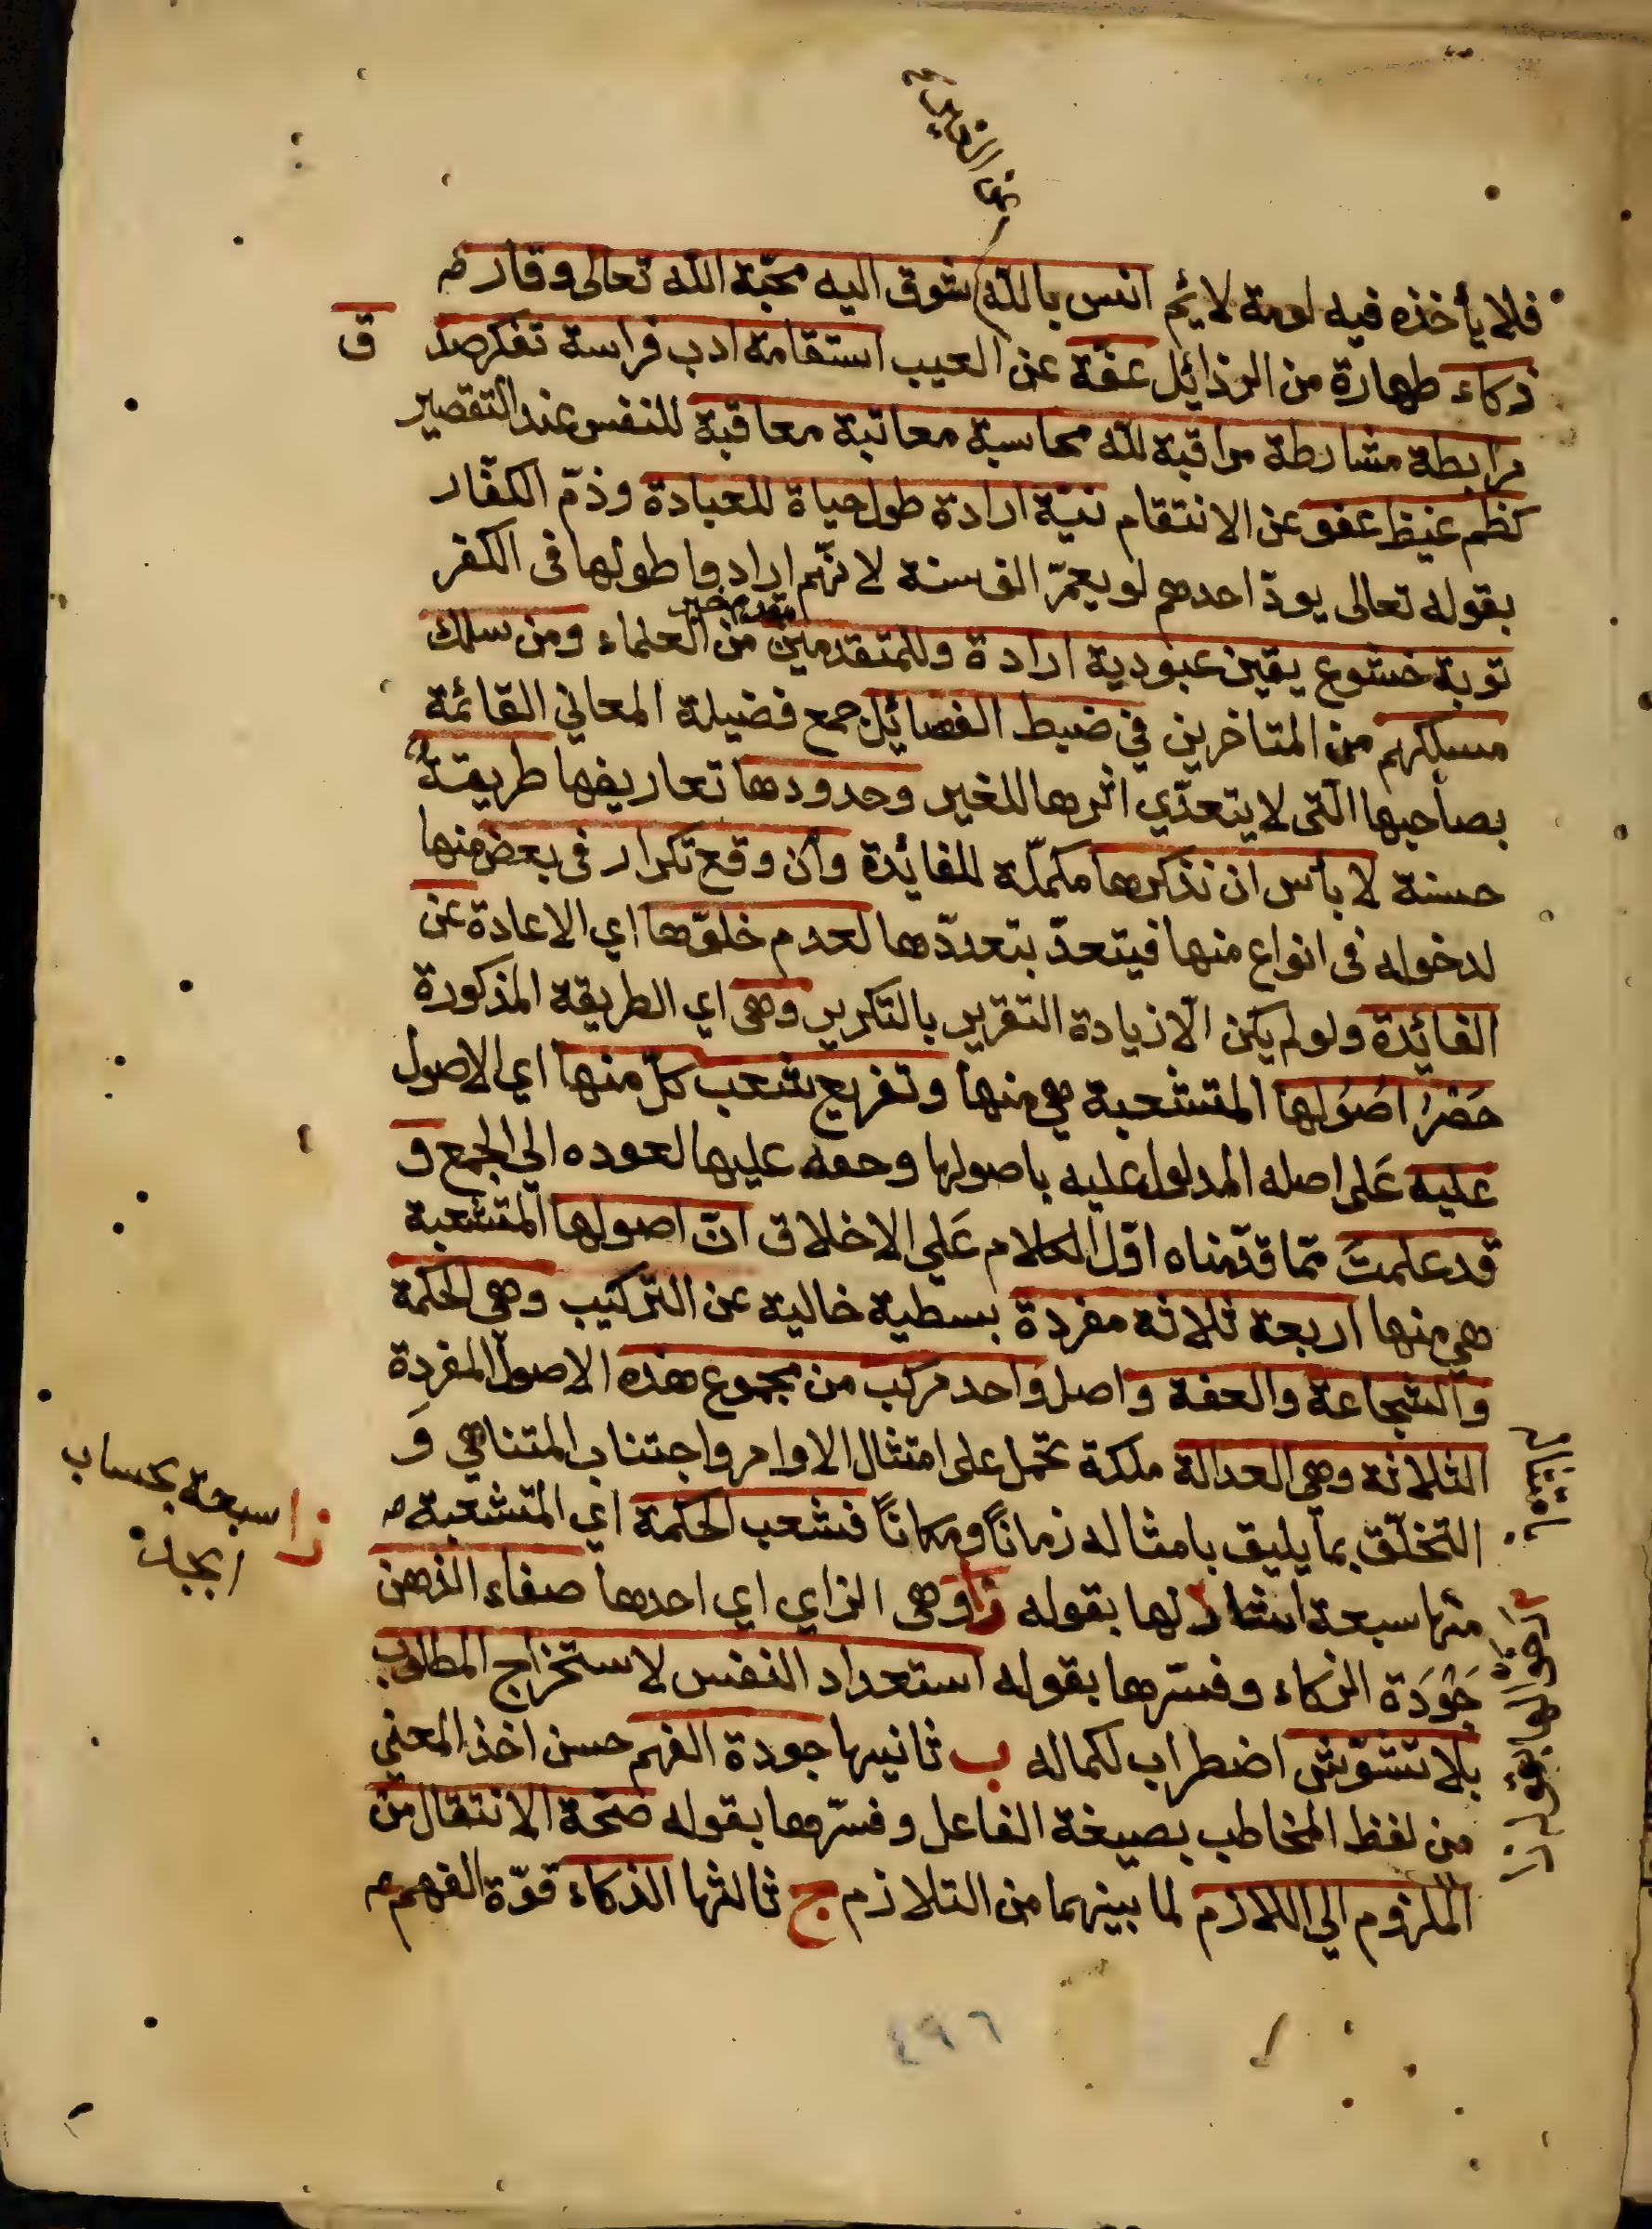 فلا يأخذه فيه لومة لائم انس بالله شوق اليه محبة الله تعالى وقار م
ذكاء طهارة من الرذائل عفة عن العيب استقامة ادب فراسة تفكر صد ق
مرابطة مشارطة مراقبة لله محاسبة معاتبة معاقبة للنفس عند التقصير
كظم غيظ عفو عن الانتقام نية ارادة طول حياة للعبادة وذم الكفار
بقوله تعالى يود احدهم لو يعمر الف سنة لانهم ارادوا طولها في الكفر
توبة خشوع يقين عبودية ارادة وللمتقدمين من العلماء ومن سلك
مسلكهم من المتاخرين في ضبط الفضائل جمع فضيلة المعاني القائمة
بصاحبها التي لا يتعدي اثرها للغير وحدودها تعاريفها طريقة
حسنة لا بأس ان نذكرها مكملة للفائدة وان وقع تكرار في بعض منها
لدخوله في انواع منها فيتعدد بتعددها لعدم خلوها اي الاعادة عن
الفائدة ولو لم يكن الا زيادة التقرير بالتكرير وهي اي الطريقة المذكورة
حَصْرُ اصُولها المتشعبة هي منها وتفريع شعب كل منها اي الاصول
عليه عَلى اصله المدلول عليه باصولها وحمه عليها لعوده الى الجمع و
قد علمتَ مما قدمناه اول الكلام عَلى الاخلاق ان اصولها المتشعبة
هي منها اربعة ثلاثة مفردة بسطية خالية عن التركيب وهي الحكمة
والشجاعة والعفة واصل واحد مركب من مجموع هذه الاصول المفردة
الثلاثة وهي العدالة ملكة تحمل على امتثال الاوامر واجتناب المتناهي وَ
التخلق بما يليق بامثاله زماناً ومكاناً فشعب الحكمة اي المتشعبة م
منها سبعة اشار لها بقوله زا وهي الزاي اي احدها صفاء الذهن
جَوْدَة الذكاء وفسرها بقوله استعداد النفس لاستخراج المطلوب
بلا تشوش اضطراب لكماله ب ثانيها جودة الفهم حسن اخذ المعني
من لفظ المخاطب بصيغة الفاعل وفسرها بقوله صحة الانتقال من
الملزوم الي اللازم لما بينهما من التلازم ج ثالثها الذكاء قوة الفهم م
زا سبعة بحساب
ابجد
٤٩٦